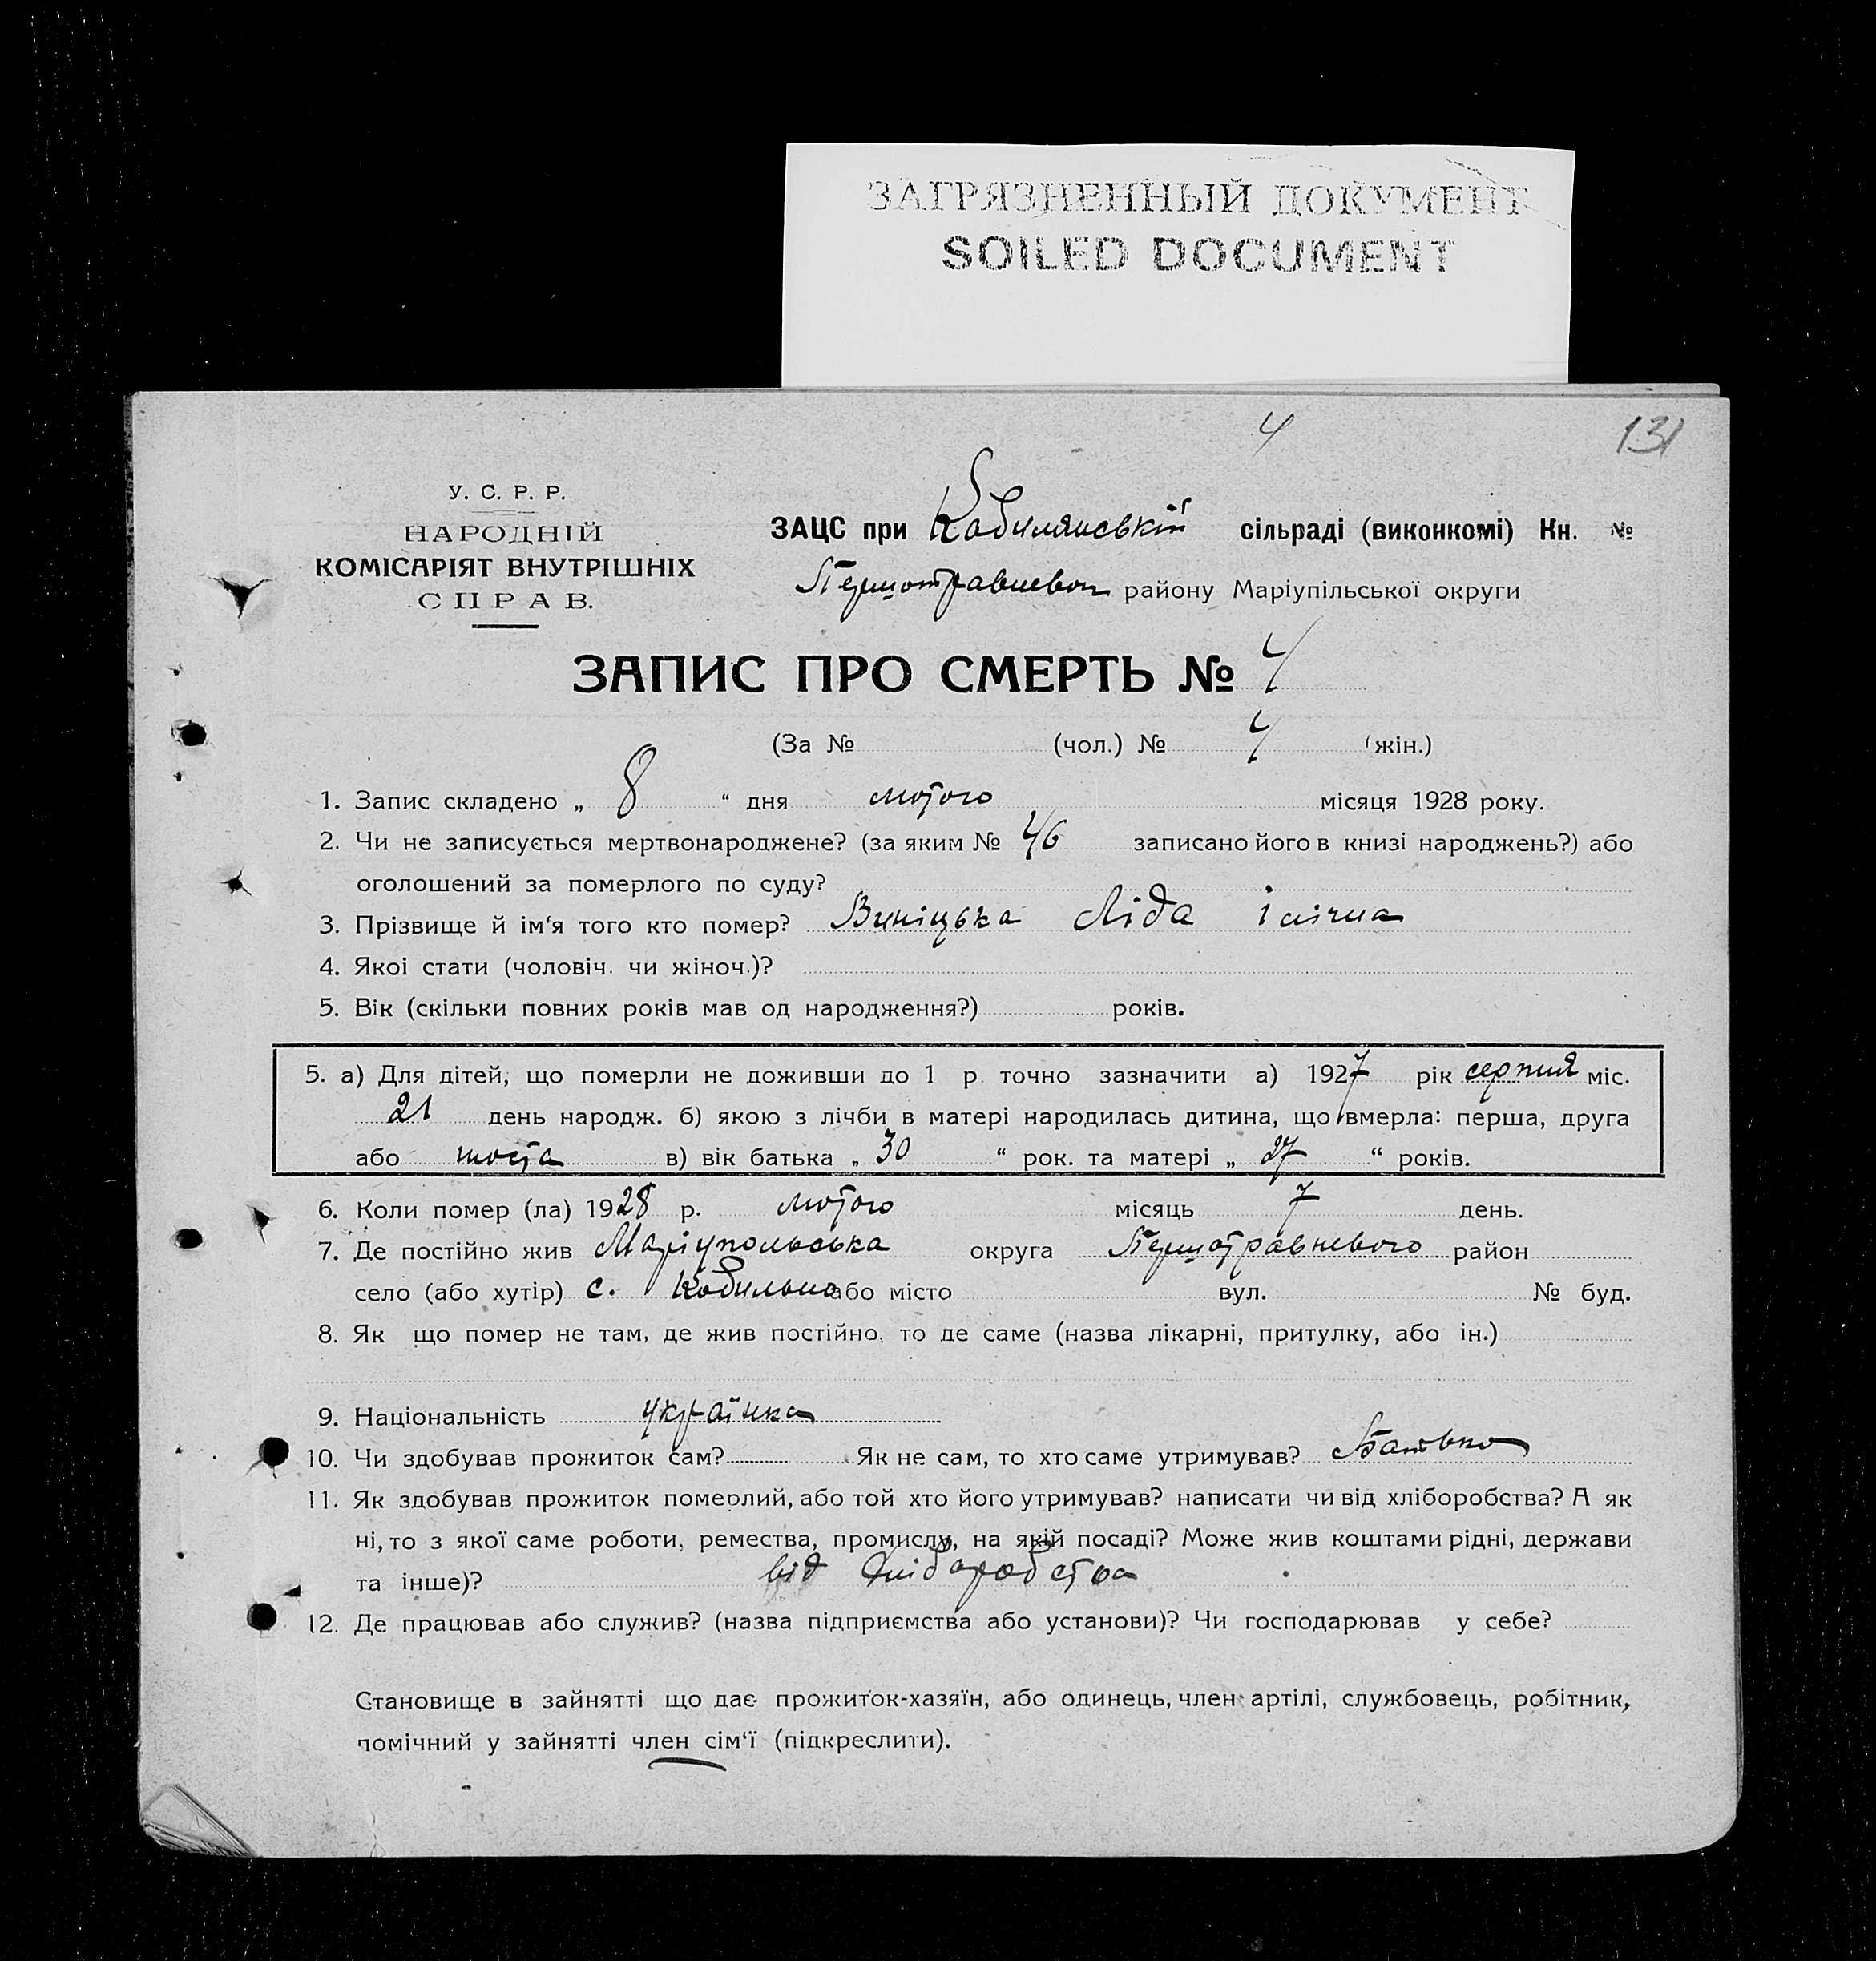 ЗАГРЯЗНЕННЫЙ ДОКУМЕНТ
SOILED DOCUMENT
4
131
У. С. Р. Р.
НАРОДНІЙ
КОМІСАРІЯТ ВНУТРІШНІХ
СПРАВ.
ЗАЦС при Кобилянській сільраді (виконкомі) Кн. №
Першотравневої району Маріупільської округи
ЗАПИС ПРО СМЕРТЬ № 4
(За № (чол.) № 4 (жін.)
1. Запис складено „ 8 “ дня лютого місяця 1928 року.
2. Чи не записується мертвонароджене? (за яким № 46 записано його в книзі народжень?) або
оголошений за померлого по суду?
3. Прізвище й ім‘я того кто помер? Виніцька Ліда
4. Якоі стати (чоловіч. чи жіноч.)?
5. Вік (скільки повних років мав од народження?) років.
5. а) Для дітей, що померли не доживши до 1 р точно зазначити а) 1927 рік серпня міс.
21 день народж. б) якою з лічби в матері народилась дитина, що вмерла: перша, друга
або шоста в) вік батька „ 30 “ рок. та матері „ 27 “ років.
6. Коли помер (ла) 1928 р. лютого місяць 7 день.
7. Де постійно жив Маріупольська округа Першотравневого район
село (або хутір) с. Кобильно або місто вул. № буд.
8. Як що помер не там, де жив постійно, то де саме (назва лікарні, притулку, або ін.)
9. Національність українка
10. Чи здобував прожиток сам? Як не сам, то хто саме утримував? Батько
11. Як здобував прожиток померлий, або той хто його утримував? написати чи від хліборобства? А як
ні, то з якої саме роботи, ремества, промислу, на якій посаді? Може жив коштами рідні, держави
та інше)? від хліборобства
12. Де працював або служив? (назва підприємства або установи)? Чи господарював у себе?
Становище в зайнятті що дає прожиток-хазяїн, або одинець, член артілі, службовець, робітник,
помічний у зайнятті член сім‘ї (підкреслити).